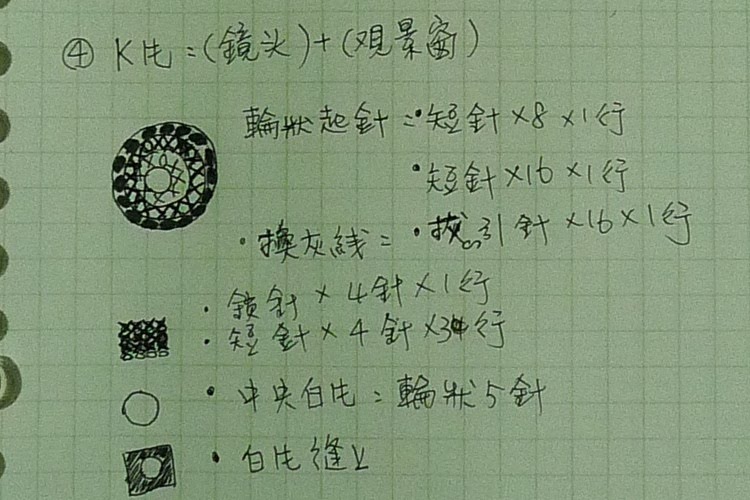 ④ K片=(鏡头)+(观景窗)
輪狀起針=•短針×8×1行
•短針×16×1行
•換灰线=•拔引針×16×1行
•鎖針×4針×1行
•短針×4針×3行
•中央白片=輪狀5針
•白片縫上